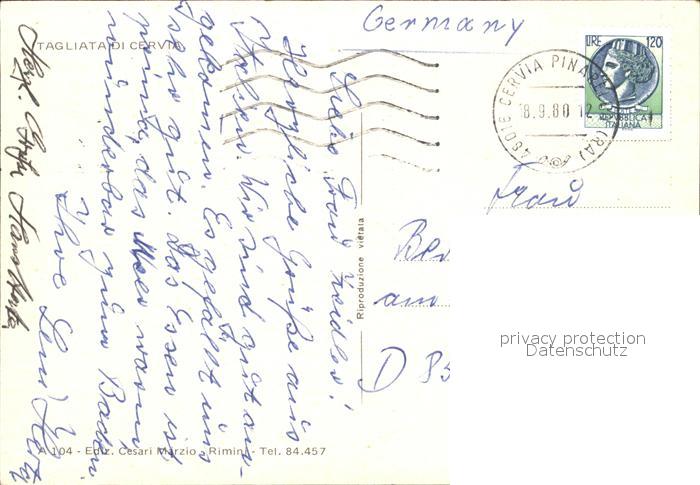 TAGLIATA DI CERVIA
Germany
LIRE 120
REPUBBLICA
ITALIANA
48016 CERVIA PINARELLA (RA)
18.9.80 12
Liebe Frau
Herzliche Grüße aus
Italien. Wir sind gut an-
gekommen. Es gefällt uns
sehr gut. Das Essen ist
prima, das Meer warm
wunderbar zum Baden.
Ihre
Herzl. Grüße
Riproduzione vietata
Frau
am
D 85
privacy protection
Datenschutz
A 104 - Ediz. Cesari Marzio - Rimini - Tel. 84.457